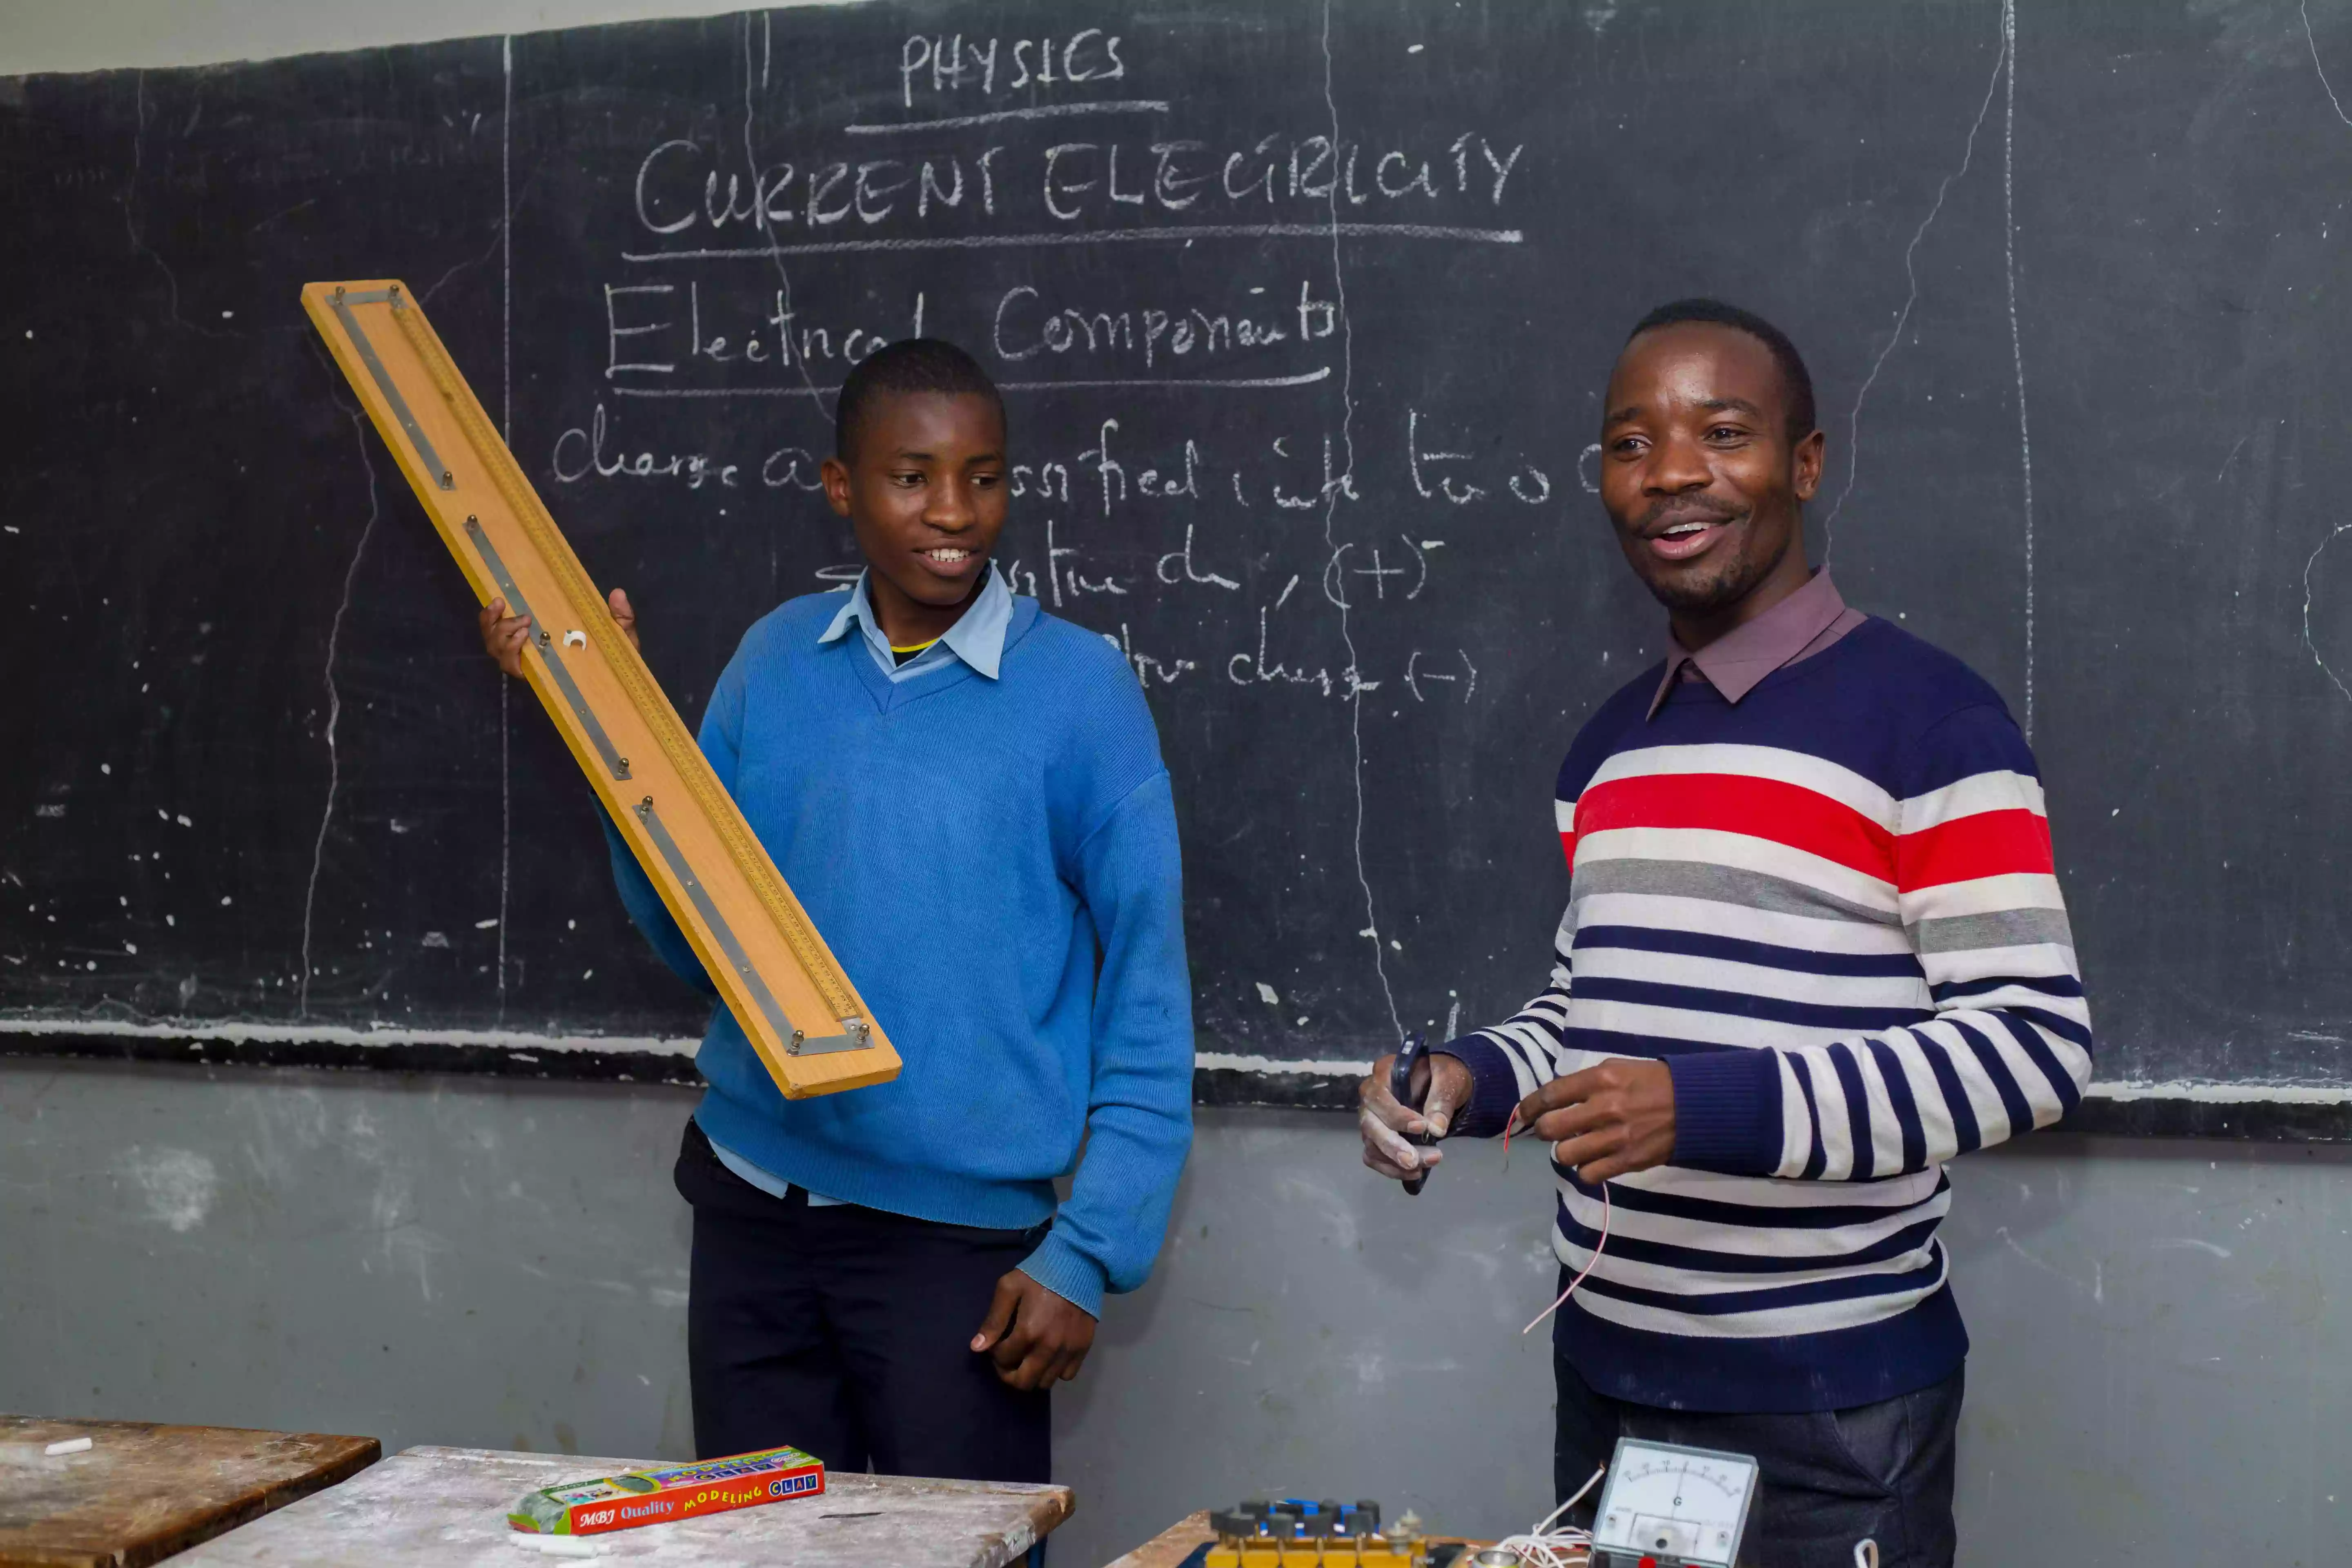 PHYSICS
CURRENT ELECTRICITY
Electrical Components
charge ssified into two
(+)
charge (-)
MBJ Quality MODELING CLAY
G